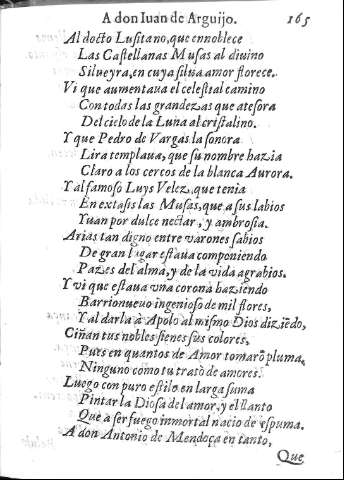 A don Iuan de Arguijo. 165
Al docto Lusitano, que ennoblece
Las Castellanas Musas al diuino
Silueyra, en cuya silua amor florece.
Vi que aumentaua el celestial camino
Con todas las grandezas que atesora
Del cielo de la Luna al cristalino.
Y que Pedro de Vargas la sonora
Lira templaua, que su nombre hazia
Claro a los cercos de la blanca Aurora.
Y al famoso Luys Velez, que tenia
En extasis las Musas, que a sus labios
Yuan por dulce nectar, y ambrosia.
Arias tan digno entre varones sabios
De gran lugar estaua componiendo
Pazes del alma, y de la vida agrabios.
Y vi que estaua vna corona haziendo
Barrionueuo ingenioso de mil flores,
Y al darla à Apolo al mismo Dios diziẽdo,
Ciñan tus nobles sienes sus colores,
Pues en quantos de Amor tomarõ pluma,
Ninguno como tu tratò de amores.
Luego con puro estilo en larga suma
Pintar la Diosa del amor, y el llanto
Que a ser fuego inmortal nacio de espuma.
A don Antonio de Mendoça en tanto,
Que